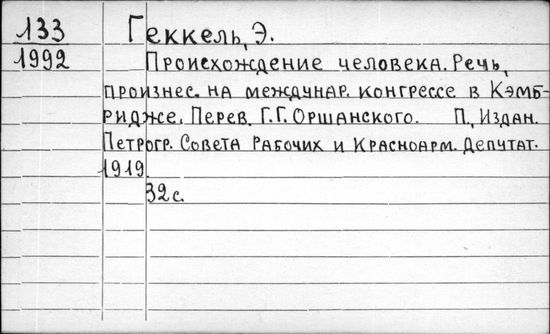 133 Геккель, Э.
1992 Происхождение человека. Речь,
произнес. на междунар. конгрессе в Кэмб-
ридже. Перев. Г.Г. Оршанского. П., Издан.
Петрогр. Совета Рабочих и Красноарм. Депутат.
1919.
32 с.